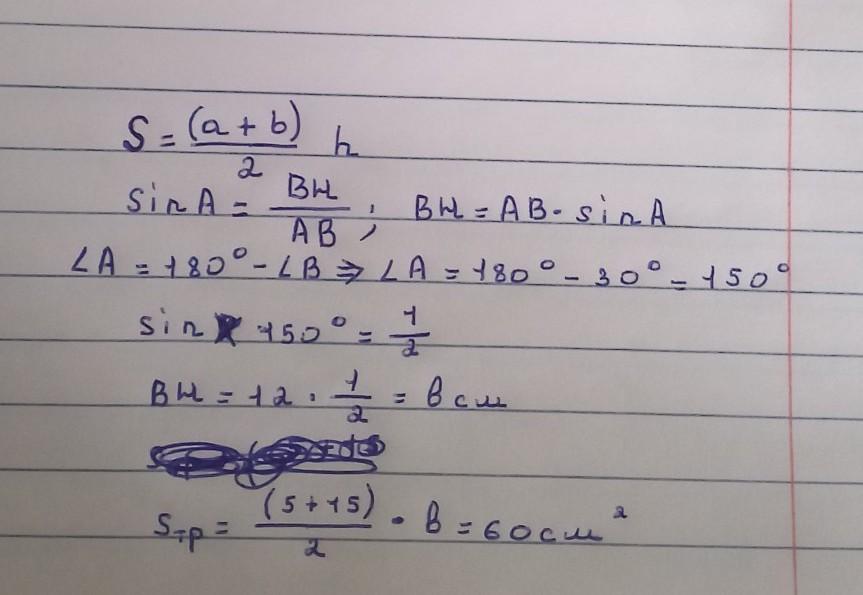 S = (a + b) / 2 h
sin A = BH / AB ; BH = AB · sin A
∠A = 180° - ∠B ⇒ ∠A = 180° - 30° = 150°
sin 150° = 1/2
BH = 12 · 1/2 = 6 см
Sтр = (5 + 15) / 2 · 6 = 60 см²